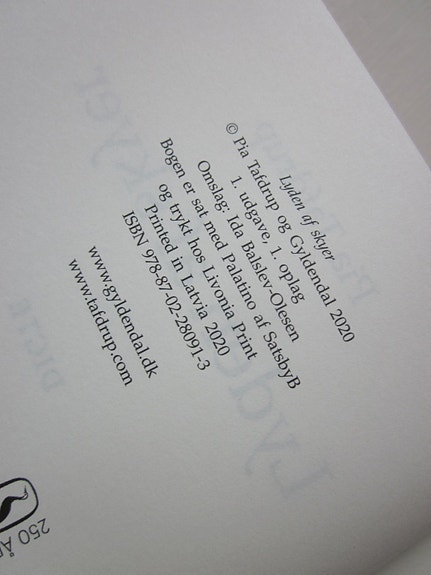 Lyden af skyer
© Pia Tafdrup og Gyldendal 2020
1. udgave, 1. oplag
Omslag: Ida Balslev-Olesen
Bogen er sat med Palatino af SatsbyB
og trykt hos Livonia Print
Printed in Latvia 2020
ISBN 978-87-02-28091-3
www.gyldendal.dk
www.tafdrup.com
250 År